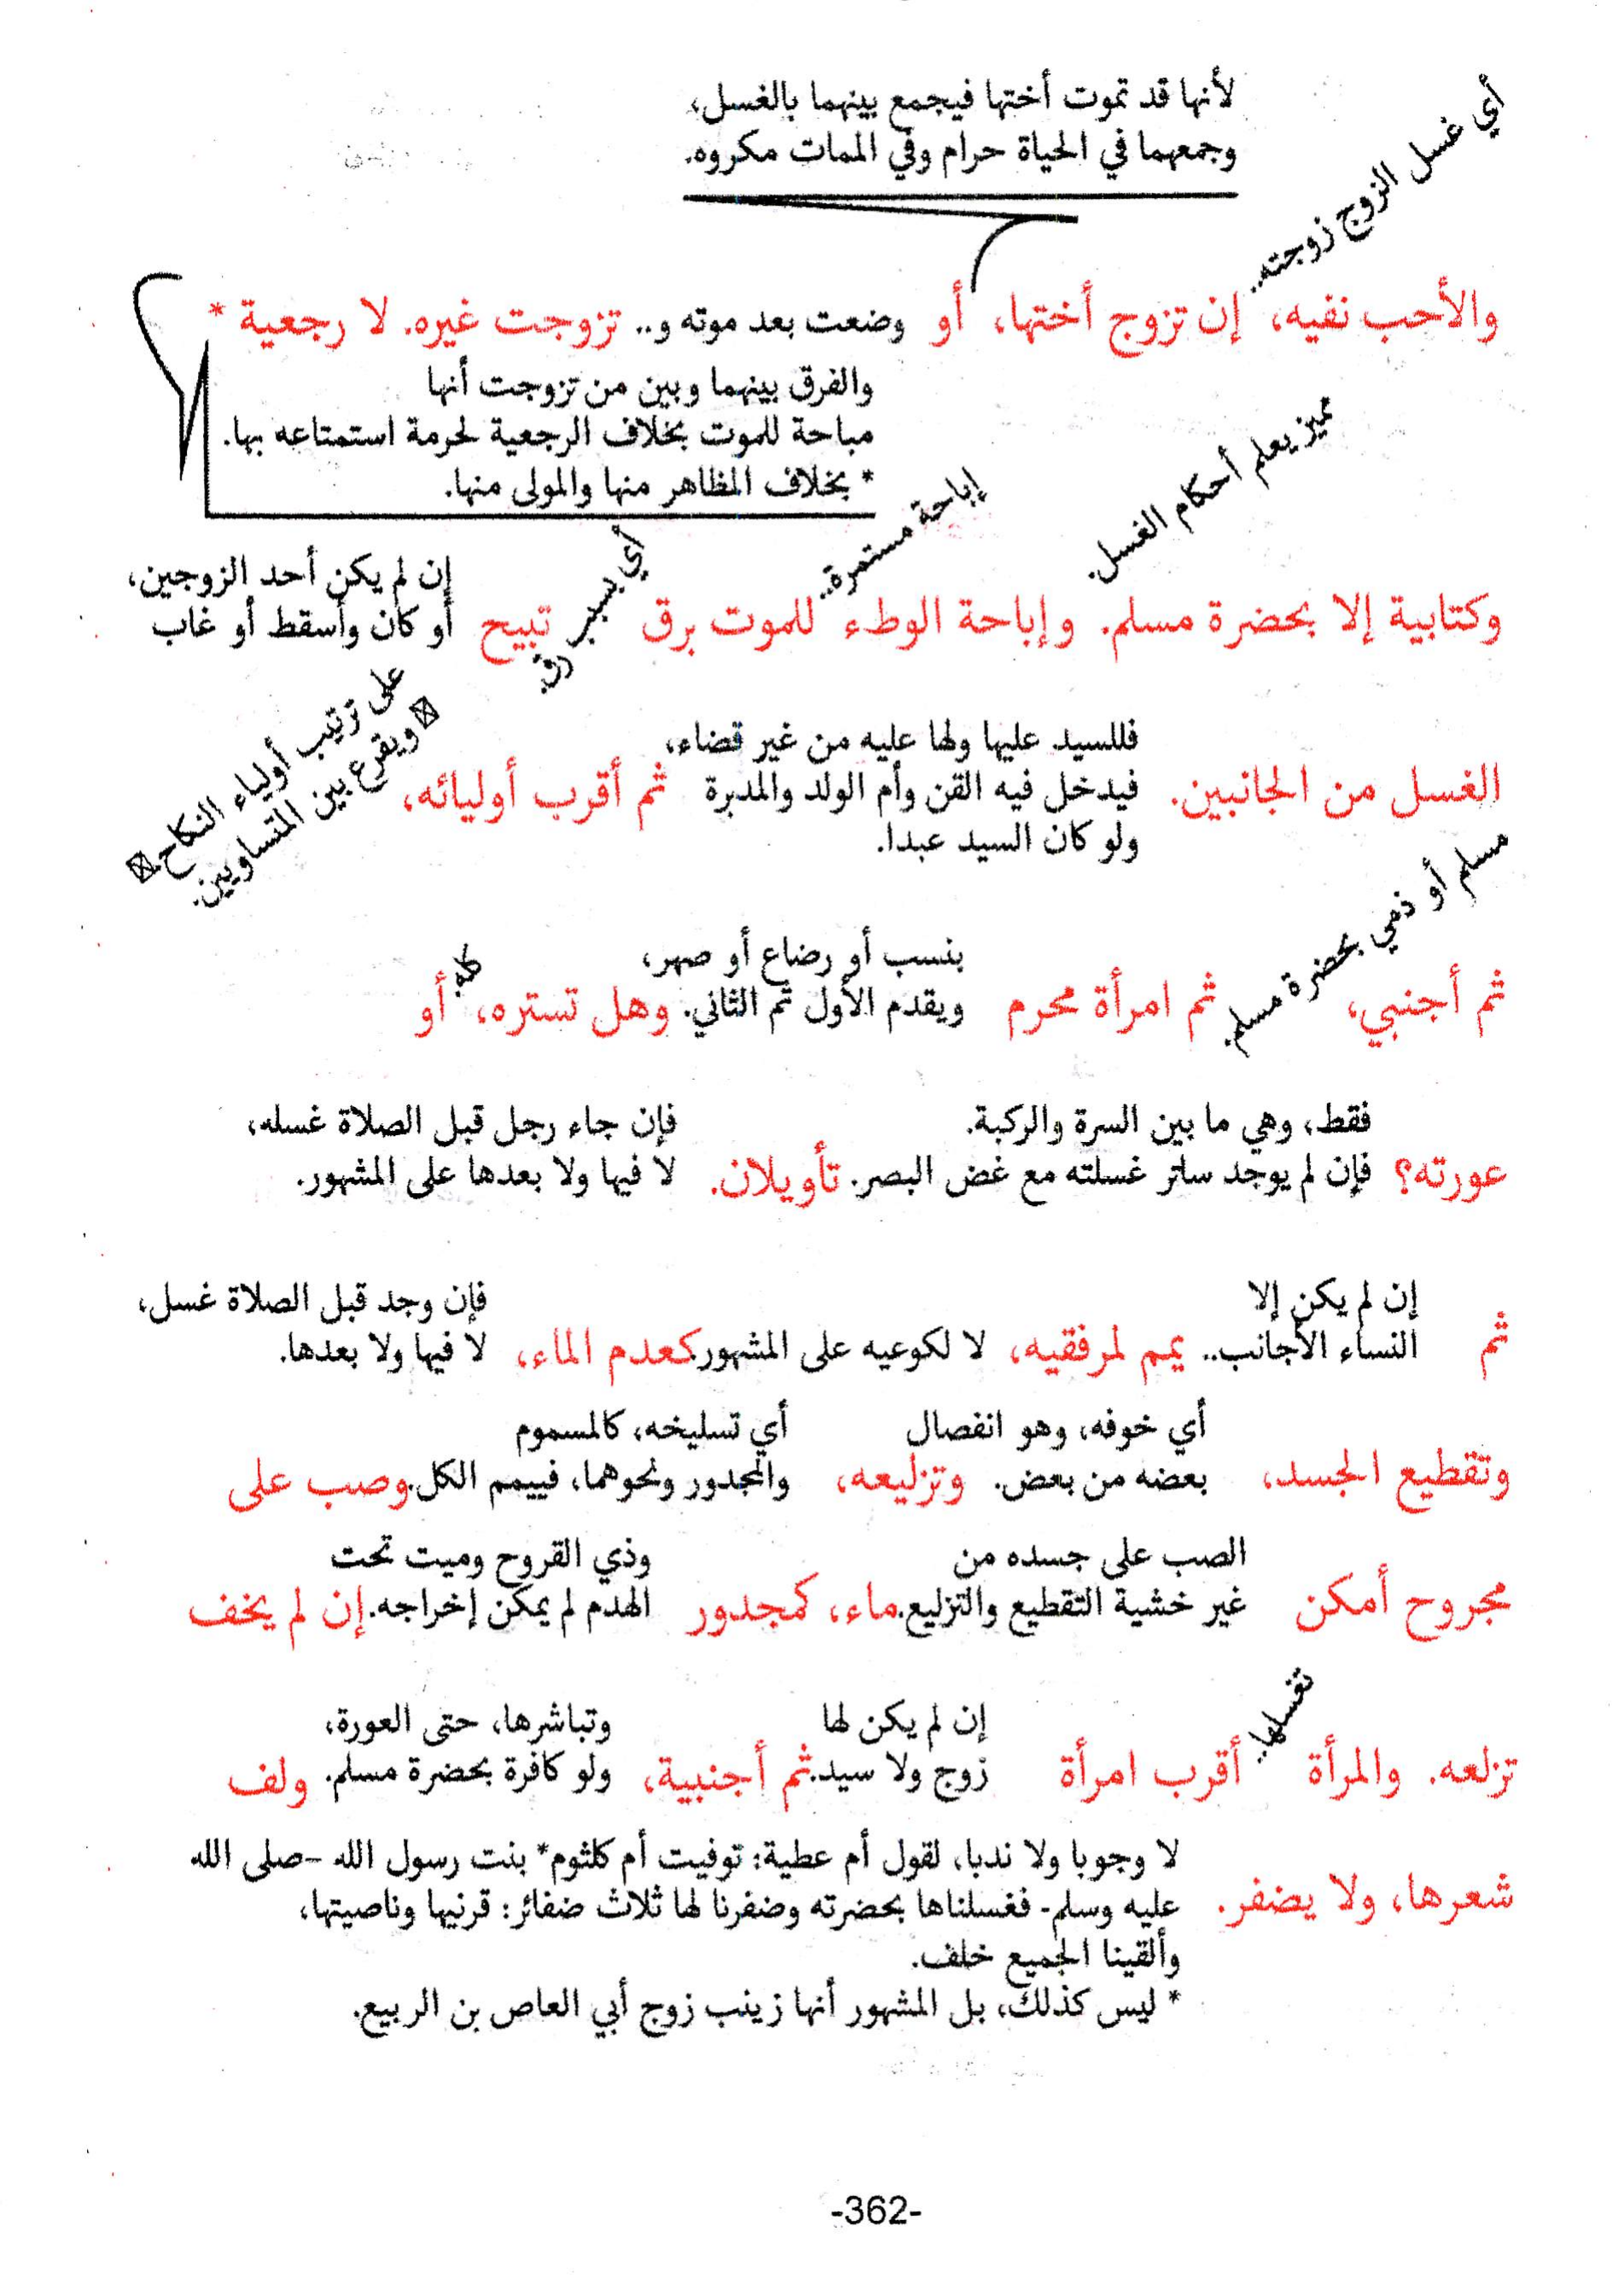 لأنها قد تموت أختها فيجمع بينهما بالغسل،
وجمعهما في الحياة حرام وفي الممات مكروه.
أي غسل الزوج زوجته..
والأحب نفيه، إن تزوج أختها، أو وضعت بعد موته و.. تزوجت غيره. لا رجعية *
والفرق بينهما وبين من تزوجت أنها
مباحة للموت بخلاف الرجعية لحرمة استمتاعه بها.
* بخلاف المظاهر منها والمولى منها.
مميز يعلم أحكام الغسل.
إباحة مستمرة..
أي بسبب رق.
إن لم يكن أحد الزوجين،
أو كان وأسقط أو غاب
وكتابية إلا بحضرة مسلم. وإباحة الوطء للموت برق تبيح
فللسيد عليها ولها عليه من غير قضاء،
فيدخل فيه القن وأم الولد والمدبرة
ولو كان السيد عبدا.
الغسل من الجانبين. ثم أقرب أوليائه،
على ترتيب أولياء النكاح
ويقرع بين المتساويين.
مسلم أو ذمي بحضرة مسلم.
بنسب أو رضاع أو صهر،
ويقدم الأول ثم الثاني.
كله
ثم أجنبي، ثم امرأة محرم وهل تستره، أو
فقط، وهي ما بين السرة والركبة.
فإن لم يوجد ساتر غسلته مع غض البصر.
فإن جاء رجل قبل الصلاة غسله،
لا فيها ولا بعدها على المشهور.
عورته؟ تأويلان.
إن لم يكن إلا
النساء الأجانب..
فإن وجد قبل الصلاة غسل،
لا فيها ولا بعدها.
ثم يمم لمرفقيه، لا لكوعيه على المشهور. كعدم الماء،
أي خوفه، وهو انفصال
بعضه من بعض.
أي تسليخه، كالمسموم
والمجدور ونحوهما، فييمم الكل.
وتقطيع الجسد، وتزليعه، وصب على
الصب على جسده من
غير خشية التقطيع والتزليع.
وذي القروح وميت تحت
الهدم لم يمكن إخراجه.
مجروح أمكن ماء، كمجدور إن لم يخف
تغسلها..
إن لم يكن لها
زوج ولا سيد.
وتباشرها، حتى العورة،
ولو كافرة بحضرة مسلم.
تزلعه. والمرأة أقرب امرأة ثم أجنبية، ولف
لا وجوبا ولا ندبا، لقول أم عطية: توفيت أم كلثوم* بنت رسول الله -صلى الله
شعرها، ولا يضفر. عليه وسلم- فغسلناها بحضرته وضفرنا لها ثلاث ضفائر: قرنيها وناصيتها،
وألقينا الجميع خلف.
* ليس كذلك، بل المشهور أنها زينب زوج أبي العاص بن الربيع.
-362-